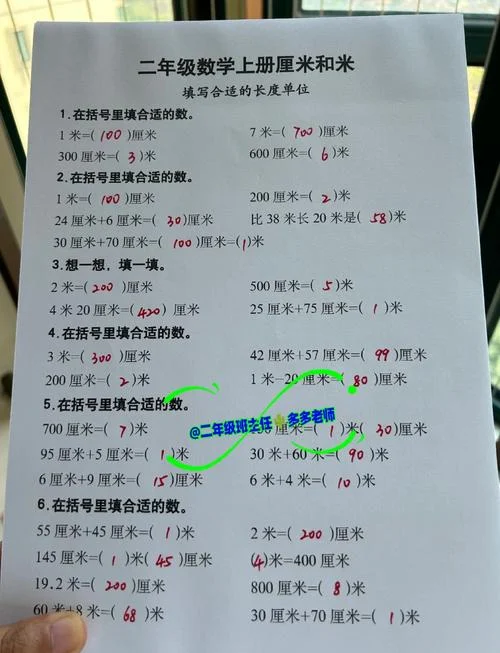 二年级数学上册厘米和米
填写合适的长度单位
1.在括号里填合适的数。
1米=(100)厘米 7米=(700)厘米
300厘米=(3)米 600厘米=(6)米
2.在括号里填合适的数。
1米=(100)厘米 200厘米=(2)米
24厘米+6厘米=(30)厘米 比38米长20米是(58)米
30厘米+70厘米=(100)厘米=(1)米
3.想一想，填一填。
2米=(200)厘米 500厘米=(5)米
4米20厘米=(420)厘米 25厘米+75厘米=(1)米
4.在括号里填合适的数。
3米=(300)厘米 42厘米+57厘米=(99)厘米
200厘米=(2)米 1米-20厘米=(80)厘米
5.在括号里填合适的数。
@二年级班主任🌟多多老师
700厘米=(7)米 30厘米=(1)米(30)厘米
95厘米+5厘米=(1)米 30米+60米=(90)米
6厘米+9厘米=(15)厘米 6米+4米=(10)米
6.在括号里填合适的数。
55厘米+45厘米=(1)米 2米=(200)厘米
145厘米=(1)米(45)厘米 (4)米=400厘米
19.2米=(200)厘米 800厘米=(8)米
60米+8米=(68)米 30厘米+70厘米=(1)米